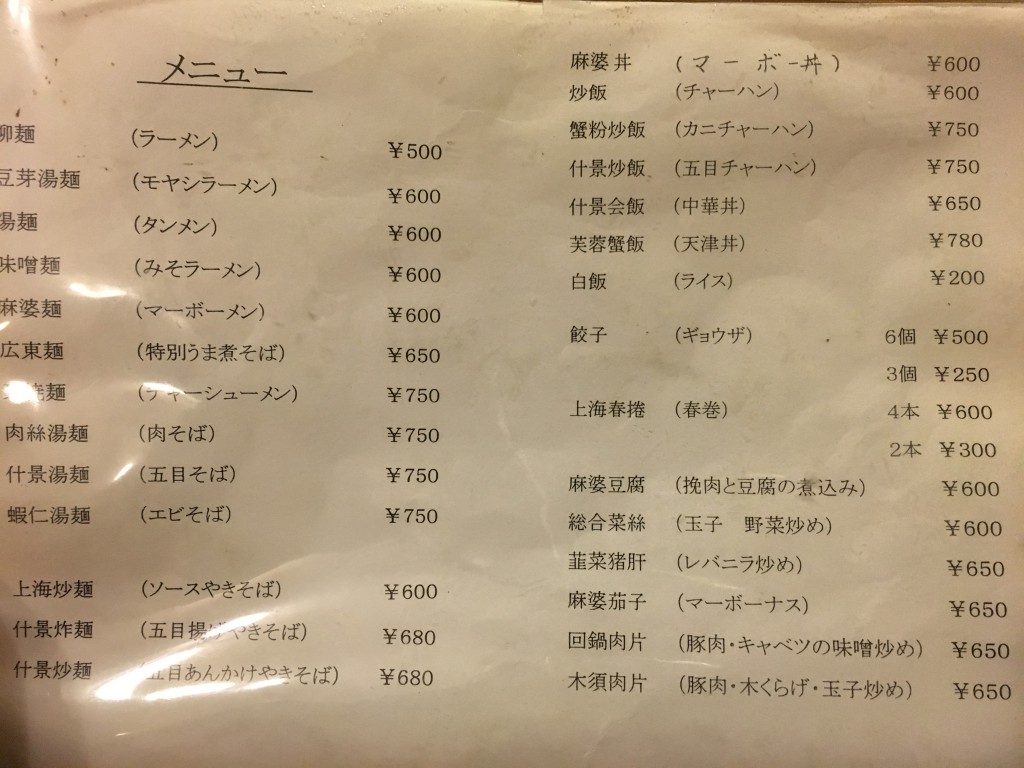 メニュー
柳麺 (ラーメン) ¥500
豆芽湯麺 (モヤシラーメン) ¥600
湯麺 (タンメン) ¥600
味噌麺 (みそラーメン) ¥600
麻婆麺 (マーボーメン) ¥600
広東麺 (特別うま煮そば) ¥650
焼麺 (チャーシューメン) ¥750
肉絲湯麺 (肉そば) ¥750
什景湯麺 (五目そば) ¥750
蝦仁湯麺 (エビそば) ¥750
上海炒麺 (ソースやきそば) ¥600
什景炸麺 (五目揚げやきそば) ¥680
什景炒麺 (五目あんかけやきそば) ¥680
麻婆丼 (マーボー丼) ¥600
炒飯 (チャーハン) ¥600
蟹粉炒飯 (カニチャーハン) ¥750
什景炒飯 (五目チャーハン) ¥750
什景会飯 (中華丼) ¥650
芙蓉蟹飯 (天津丼) ¥780
白飯 (ライス) ¥200
餃子 (ギョウザ) 6個 ¥500
3個 ¥250
上海春捲 (春巻) 4本 ¥600
2本 ¥300
麻婆豆腐 (挽肉と豆腐の煮込み) ¥600
総合菜絲 (玉子 野菜炒め) ¥600
韮菜猪肝 (レバニラ炒め) ¥650
麻婆茄子 (マーボーナス) ¥650
回鍋肉片 (豚肉・キャベツの味噌炒め) ¥650
木須肉片 (豚肉・木くらげ・玉子炒め) ¥650